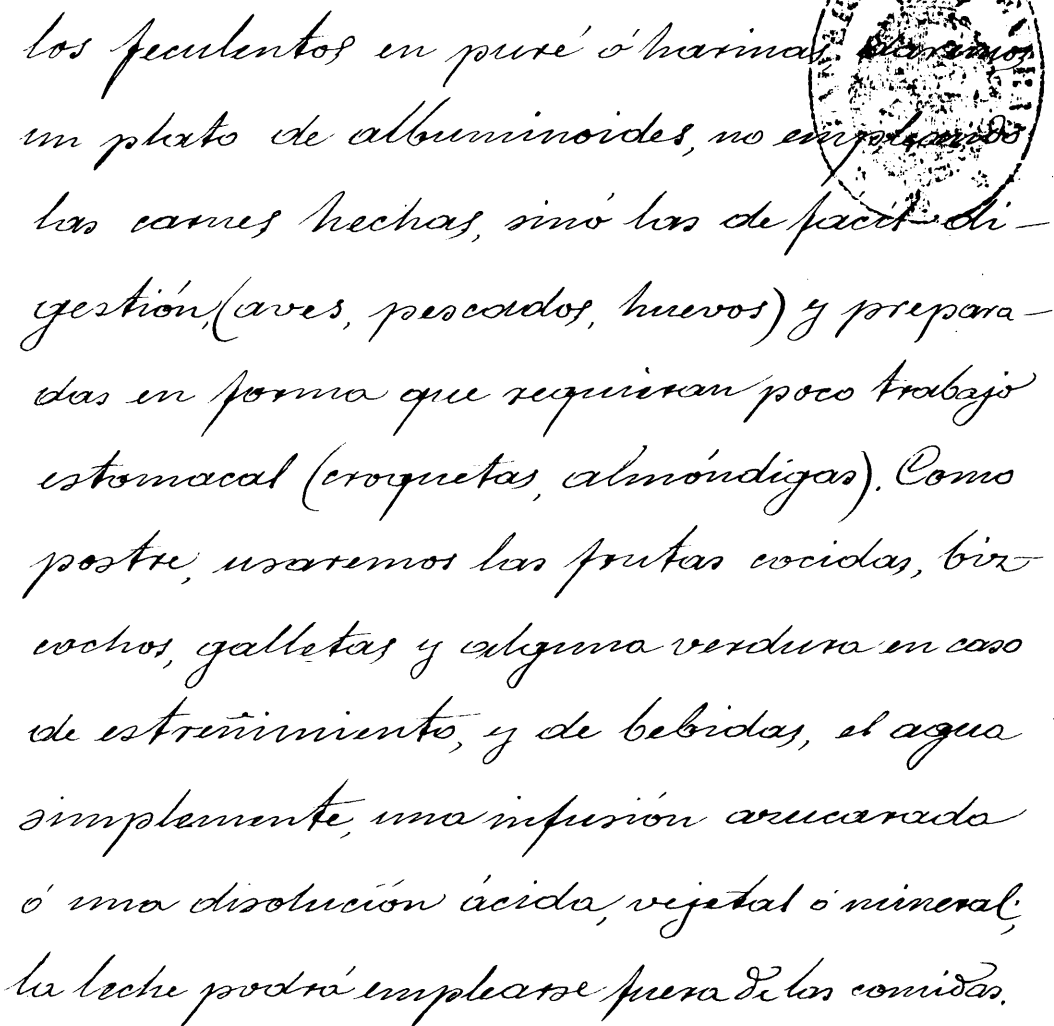 los feculentos en puré ó harinas, daremos
un plato de albuminoides, no empleando
las carnes hechas, sinó las de facil di-
gestión, (aves, pescados, huevos) y prepara-
das en forma que requieran poco trabajo
estomacal (croquetas, almóndigas). Como
postre, usaremos las frutas cocidas, biz-
cochos, galletas y alguna verdura en caso
de estreñimiento, y de bebidas, el agua
simplemente, una infusión azucarada
ó una disolución ácida, vejetal ó mineral;
la leche podrá emplearse fuera de las comidas.